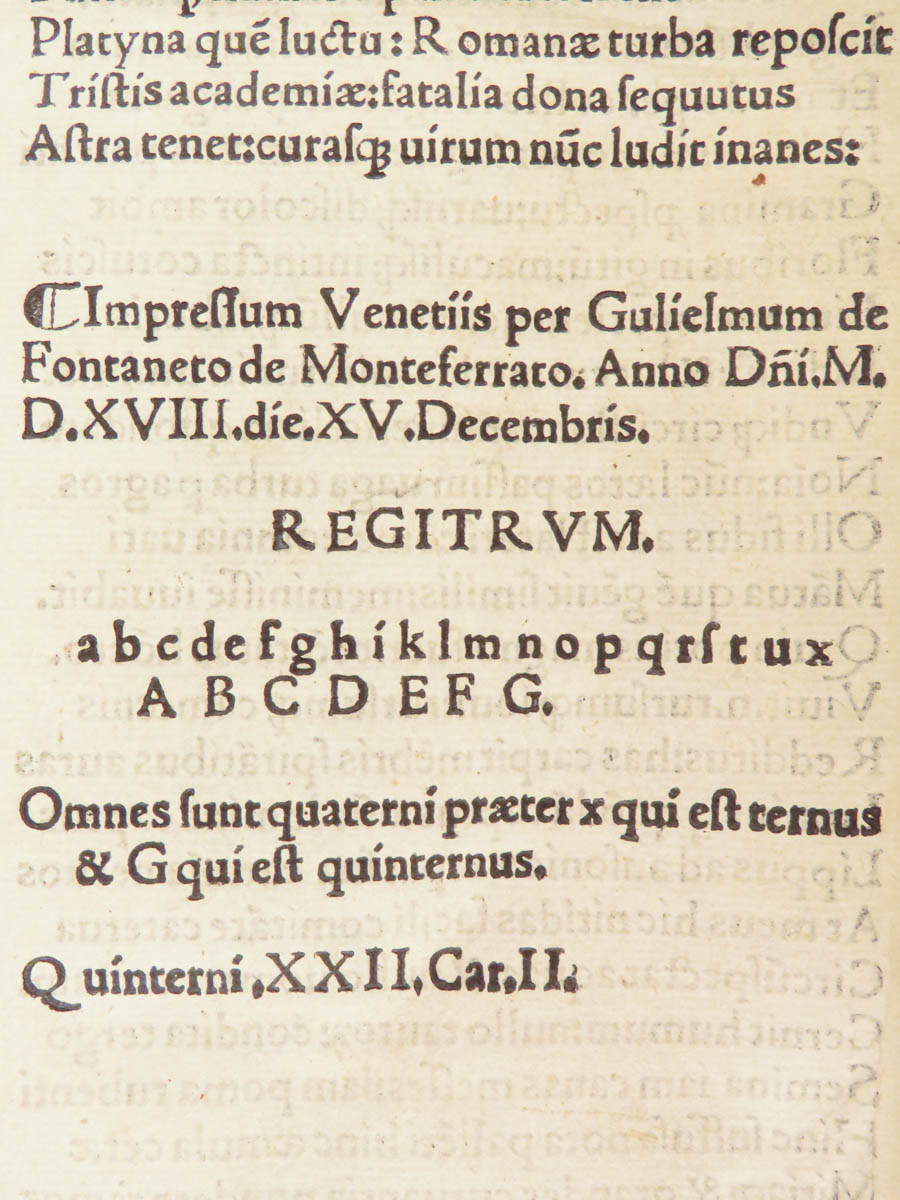 Platyna quē luctu: Romanæ turba reposcit
Tristis academiæ: fatalia dona sequutus
Astra tenet: curasqꝫ uirum nūc ludit inanes:
¶Impressum Venetiis per Gulielmum de
Fontaneto de Monteferrato. Anno Dñi. M.
D.XVIII. die. XV. Decembris.
REGITRVM.
a b c d e f g h i k l m n o p q r ſ t u x
A B C D E F G.
Omnes sunt quaterni præter x qui est ternus
& G qui est quinternus.
Quinterni. XXII. Car. II.